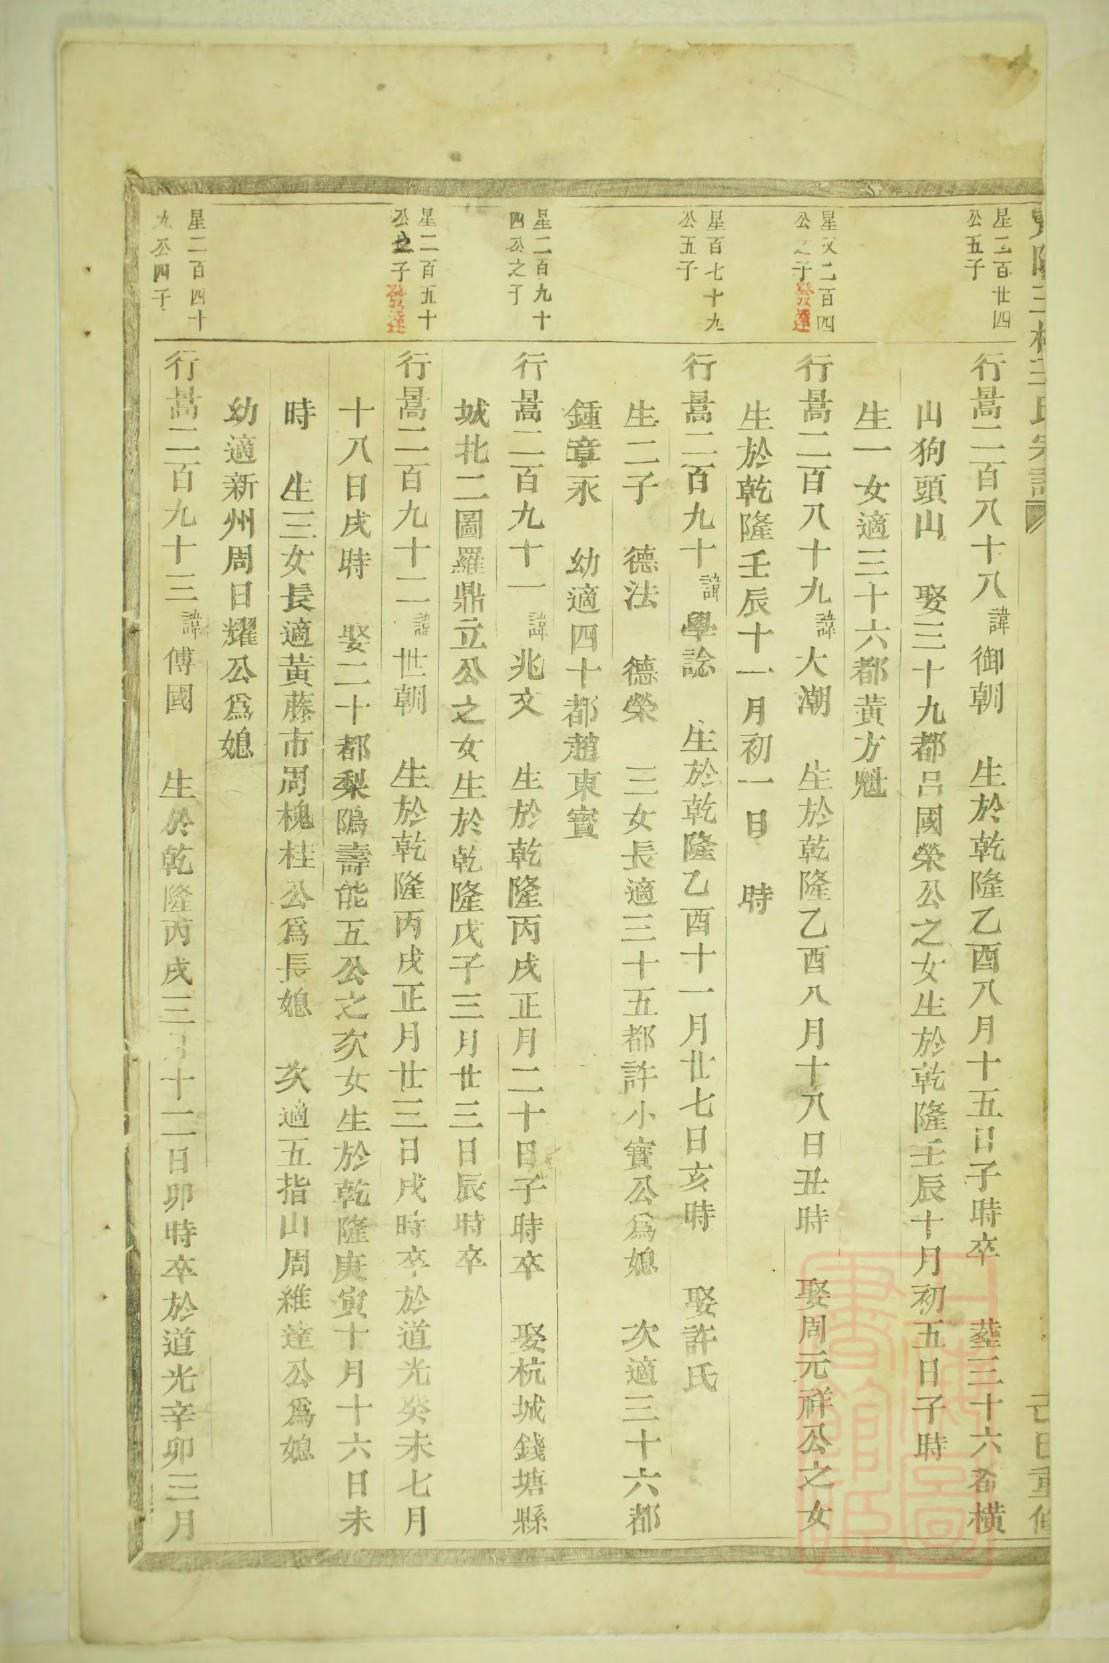 星二百廿四
公五子
行暠二百八十八諱御朝 生於乾隆乙酉八月十五日子時卒 葬三十六都橫
山狗頭山 娶三十九都呂國榮公之女生於乾隆壬辰十月初五日子時
生一女適三十六都黃方魁
星 二百四
公之子發達
行暠二百八十九諱大潮 生於乾隆乙酉八月十八日丑時 娶周元祥公之女
生於乾隆壬辰十一月初一日 時
星百七十九
公五子
行暠二百九十諱學諗 生於乾隆乙酉十一月廿七日亥時 娶許氏
生二子 德法 德榮 三女長適三十五都許小寳公爲媳 次適三十六都
鍾章永 幼適四十都趙東寳
星二百九十
四公之子
行暠二百九十一諱兆文 生於乾隆丙戌正月二十日子時卒 娶杭城錢塘縣
城北二圖羅鼎立公之女生於乾隆戊子三月廿三日辰時卒
星二百五十
公之子發達
行暠二百九十二諱世朝 生於乾隆丙戌正月廿三日戌時卒於道光癸未七月
十八日戌時 娶二十都梨隖壽能五公之次女生於乾隆庚寅十月十六日未
時 生三女長適黃藤市周槐桂公爲長媳 次適五指山周維達公爲媳
幼適新州周日耀公爲媳
星二百四十
九公四子
行暠二百九十三諱傅國 生於乾隆丙戌三月十二日卯時卒於道光辛卯三月